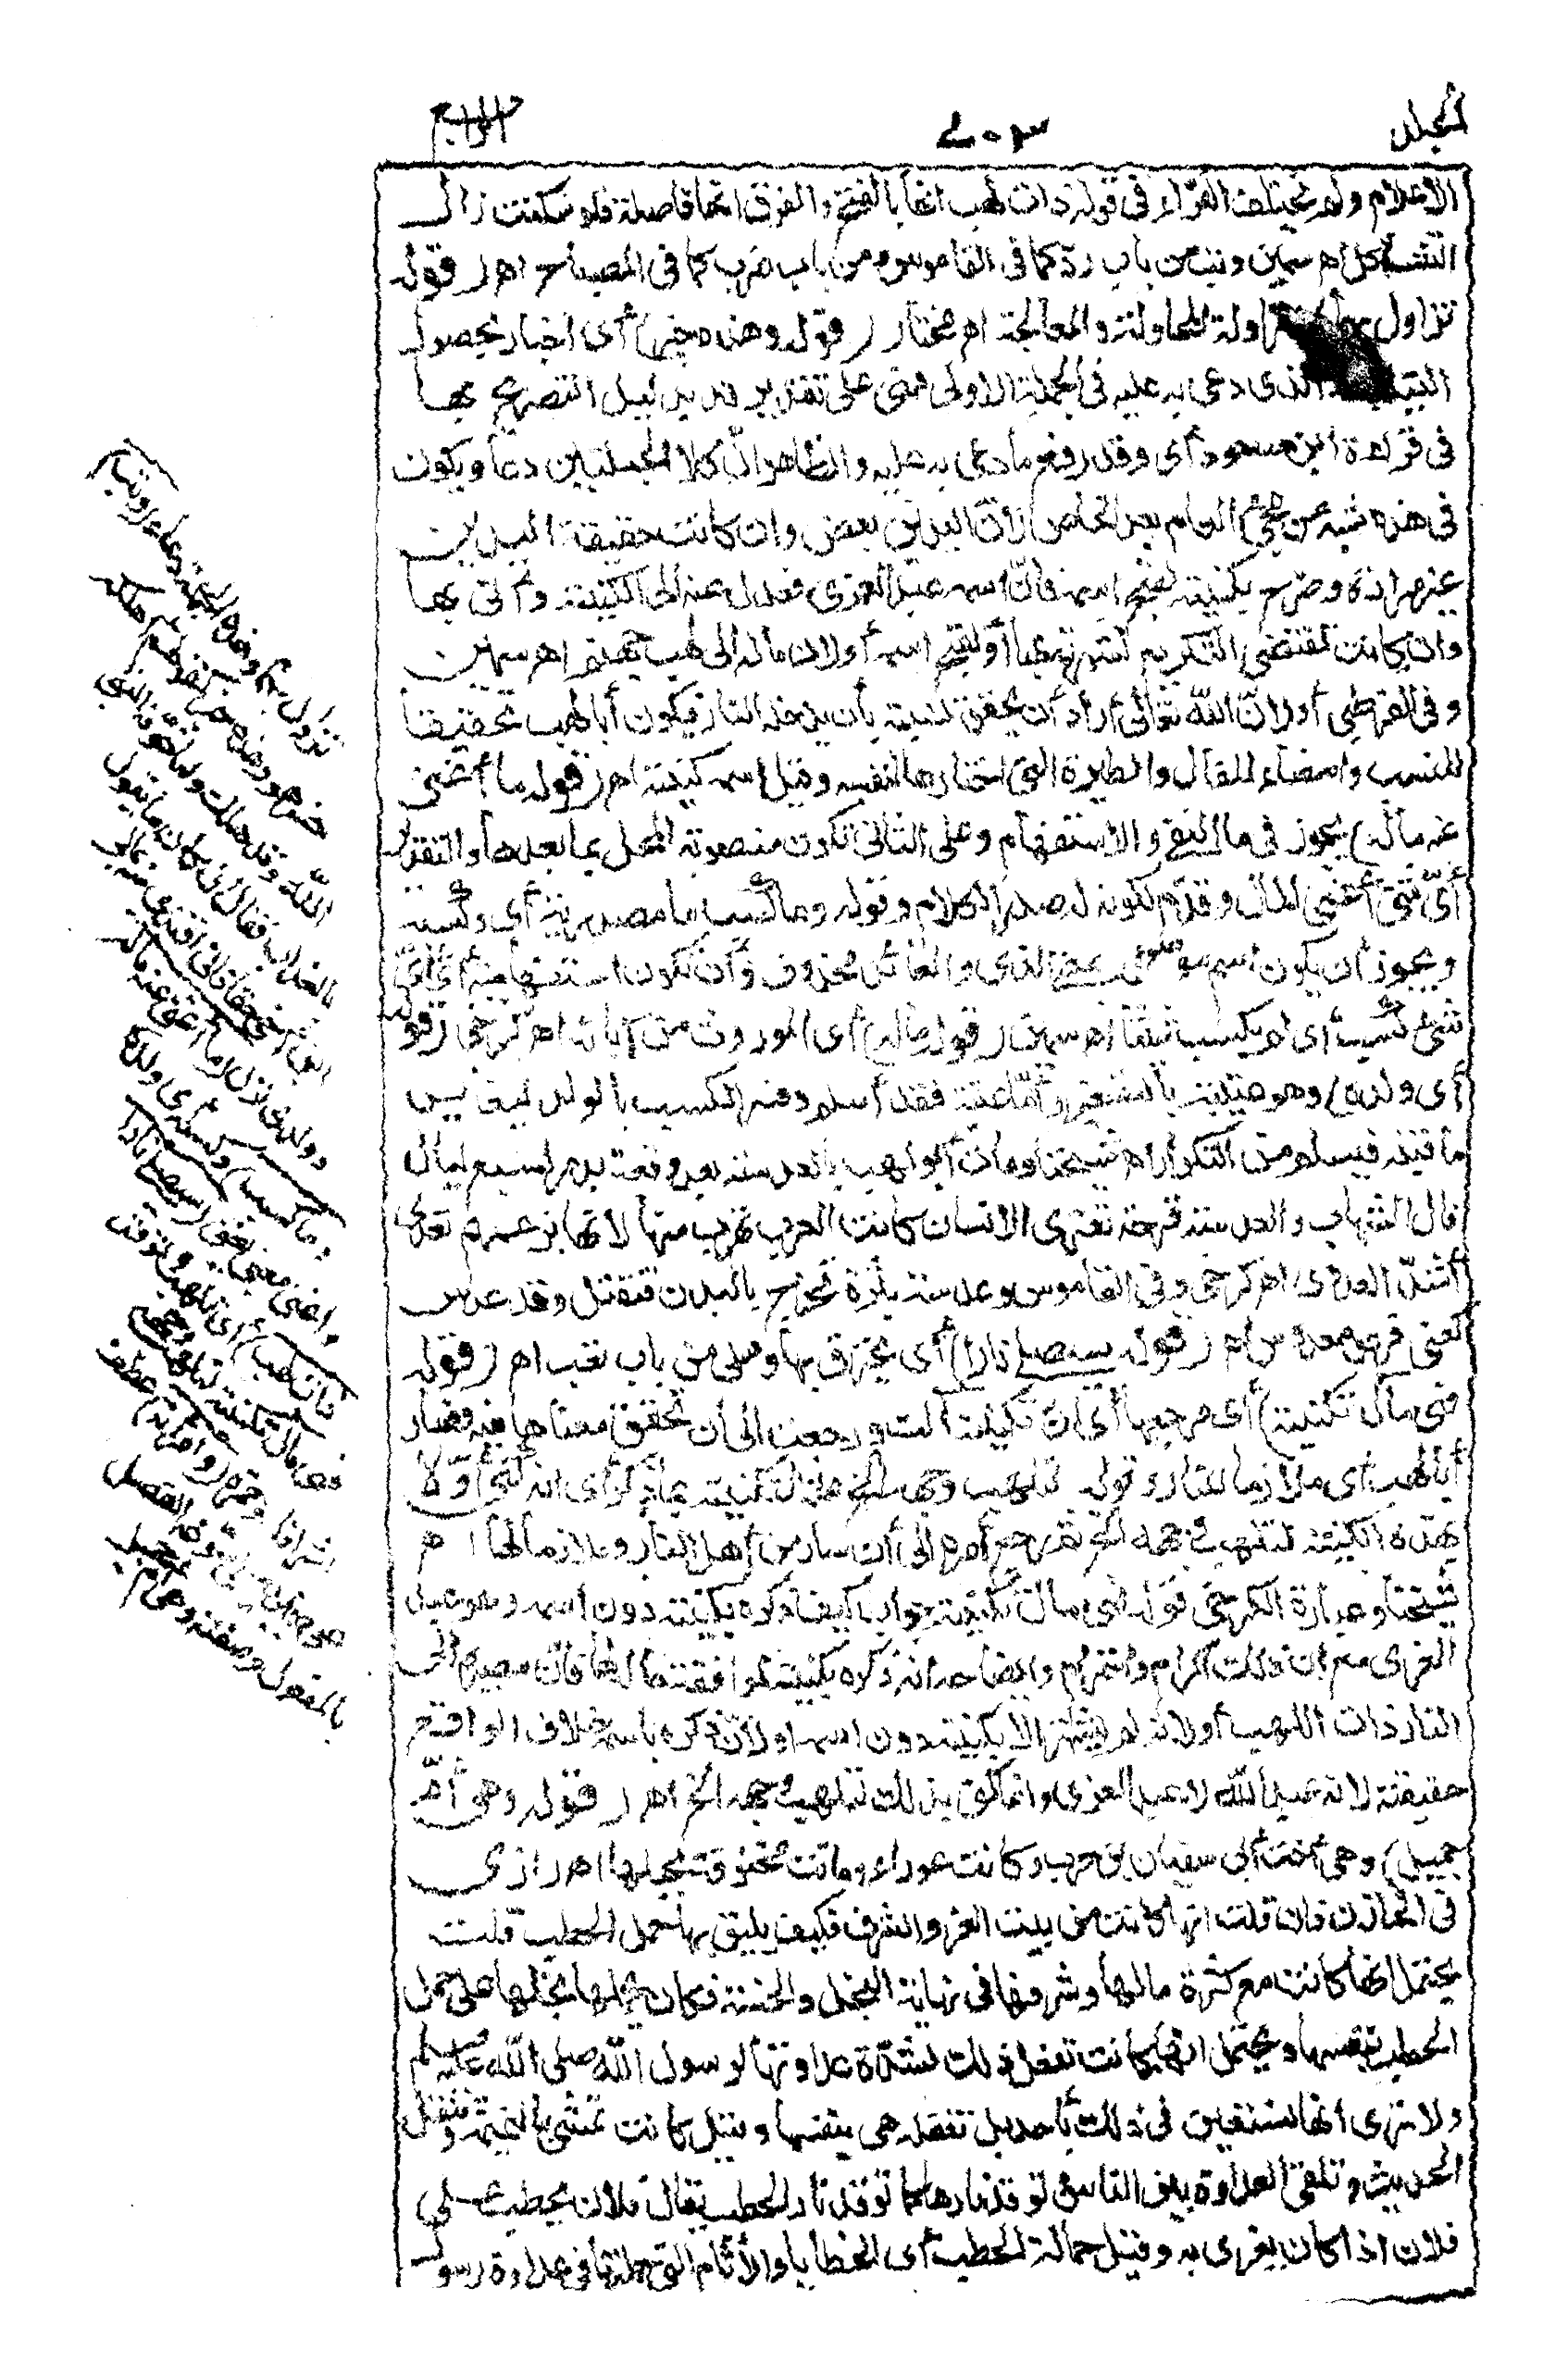 المجلد
٧٠٣
الرابع
الاعلام ولم يختلف القراء في قوله ذات لهب انها بالفتح والفرق انها فاصلة فلو سكنت زال
التشاكل اه سمين وتب من باب رد كما في القاموس ومن باب ضرب كما في المصباح اه (قوله
تزاول بها) المزاولة المحاولة والمعالجة اه مختار (قوله وهذه خبر) أى اخبار بحصول
التباب الذى دعى به عليه فى الجملة الاولى فهى على تقدير قد بدليل التصريح بها
فى قراءة ابن مسعود أى وقد وقع ما دعى به عليه والظاهر ان كلا الجملتين دعا ويكون
فى هذه شبه من مجئ العام بعد الخاص لان اليدين بعض وان كانت حقيقة اليدين
غير مرادة وصرح بكنيته لقبح اسمه فان اسمه عبد العزى فعدل عنه الى الكنية وأتى بها
وان كانت تقتضى التكريم لشهرته بها أو لقبح اسمه أو لان مآله الى لهب جهنم اه سمين
وفى القرطبي أو لان الله تعالى أراد أن يحقق نسبته بأن يدخله النار فيكون أبا لهب تحقيقا
للنسب وامضاء للفال والطيرة التى اختارها لنفسه وقيل اسمه كنيته اه (قوله ما أغنى
عنه ماله) يجوز فى ما النفى والاستفهام وعلى الثانى تكون منصوبة المحل بما بعدها والتقدير
أىّ شئ أغنى المال وقدّم لكونه له صدر الكلام وقوله وما كسب ما مصدرية أى وكسبه
ويجوز أن يكون اسم موصول بمعنى الذى والعائد محذوف وأن تكون استفهامية أى أىّ
شئ كسب أى لم يكسب شيئا اه سمين (قوله ماله) أى الموروث من آبائه اه كرخى (قوله
أى ولده) وهو عتيبة بالتصغير وأمّا عتبة فقد أسلم وفسر الكسب بالولد ليغاير
ما قبله فيسلم من التكرار اه شيخنا ومات أبو لهب بالعدسة بعد وقعة بدر لسبع ليال
قال الشهاب والعدسة قرحة تعترى الانسان كانت العرب تهرب منها لانها بزعمهم تعدى
أشدّ العدوى اه كرخى وفى القاموس وعدسة بثرة تخرج بالبدن فتقتل وقد عدس
كعنى فهو معدوس اه (قوله سيصلى نارا) أى يحترق بها وصلى من باب تعب اه (قوله
فهى مآل تكنيته) أى مرجعها أى ان تكنيته آلت ورجعت الى أن تحقق معناها فيه فصار
أبا لهب أى ملازما للنار وقوله لتلهب وجهه الخ علة لتكنيته بما ذكر أى انه كنى أوّلا
بهذه الكنية لتلهب وجهه الخ ثم رجع أمره الى أن صار من أهل النار وملازما لها اه
شيخنا وعبارة الكرخى قوله فهى مآل تكنيته جواب كيف ذكره بكنيته دون اسمه وهو عبد
العزى مع ان ذلك اكرام واحترام وايضاحه انه ذكره بكنيته لموافقة حاله لها فان مصيره الى
النار ذات اللهب أو لانه لم يشتهر الا بكنيته دون اسمه أو لان ذكره باسمه خلاف الواقع
حقيقة لانه عبد الله لا عبد العزى وانما كنى بذلك لتلهب وجهه الخ اه (قوله وهى أمّ
جميل) وهى أخت أبى سفيان بن حرب وكانت عوراء وماتت مخنوقة بحبلها اه رازى
فى الخازن فان قلت انها كانت من بيت العز والشرف فكيف يليق بها حمل الحطب قلت
يحتمل انها كانت مع كثرة مالها وشرفها فى نهاية البخل والخسة فكان يحملها بخلها على حمل
الحطب بنفسها ويحتمل انها كانت تفعل ذلك لشدّة عداوتها لرسول الله صلى الله عليه وسلم
ولا ترى انها تستعين فى ذلك بأحد بل تفعله هى بنفسها وقيل كانت تمشى بالنميمة وتنقل
الحديث وتلقى العداوة بين الناس توقد نارها كما توقد نار الحطب يقال فلان يحطب على
فلان اذا كان يغرى به وقيل حمالة الحطب أى الخطايا والآثام التى حملتها فى عداوة رسول
تزاول بهما وهذه الجملة دعاء (وتب)
خسر هو وهذه خبر كقولهم أهلكه
الله وقد هلك ولما خوفه النبى
بالعذاب فقال ان كان ما يقول
ابن أخى حقا فانى أفتدى منه بمالى
وولدى نزل (ما أغنى عنه ماله
وما كسب) وكسبه أى ولده
وأغنى بمعنى يغنى (سيصلى نارا
ذات لهب) أى تلهب وتوقد
فهى مآل تكنيته لتلهب وجهه
اشراقا وحمرة (وامرأته) عطف
على ضمير يصلى سوغه الفصل
بالمفعول وصفته وهى أم جميل